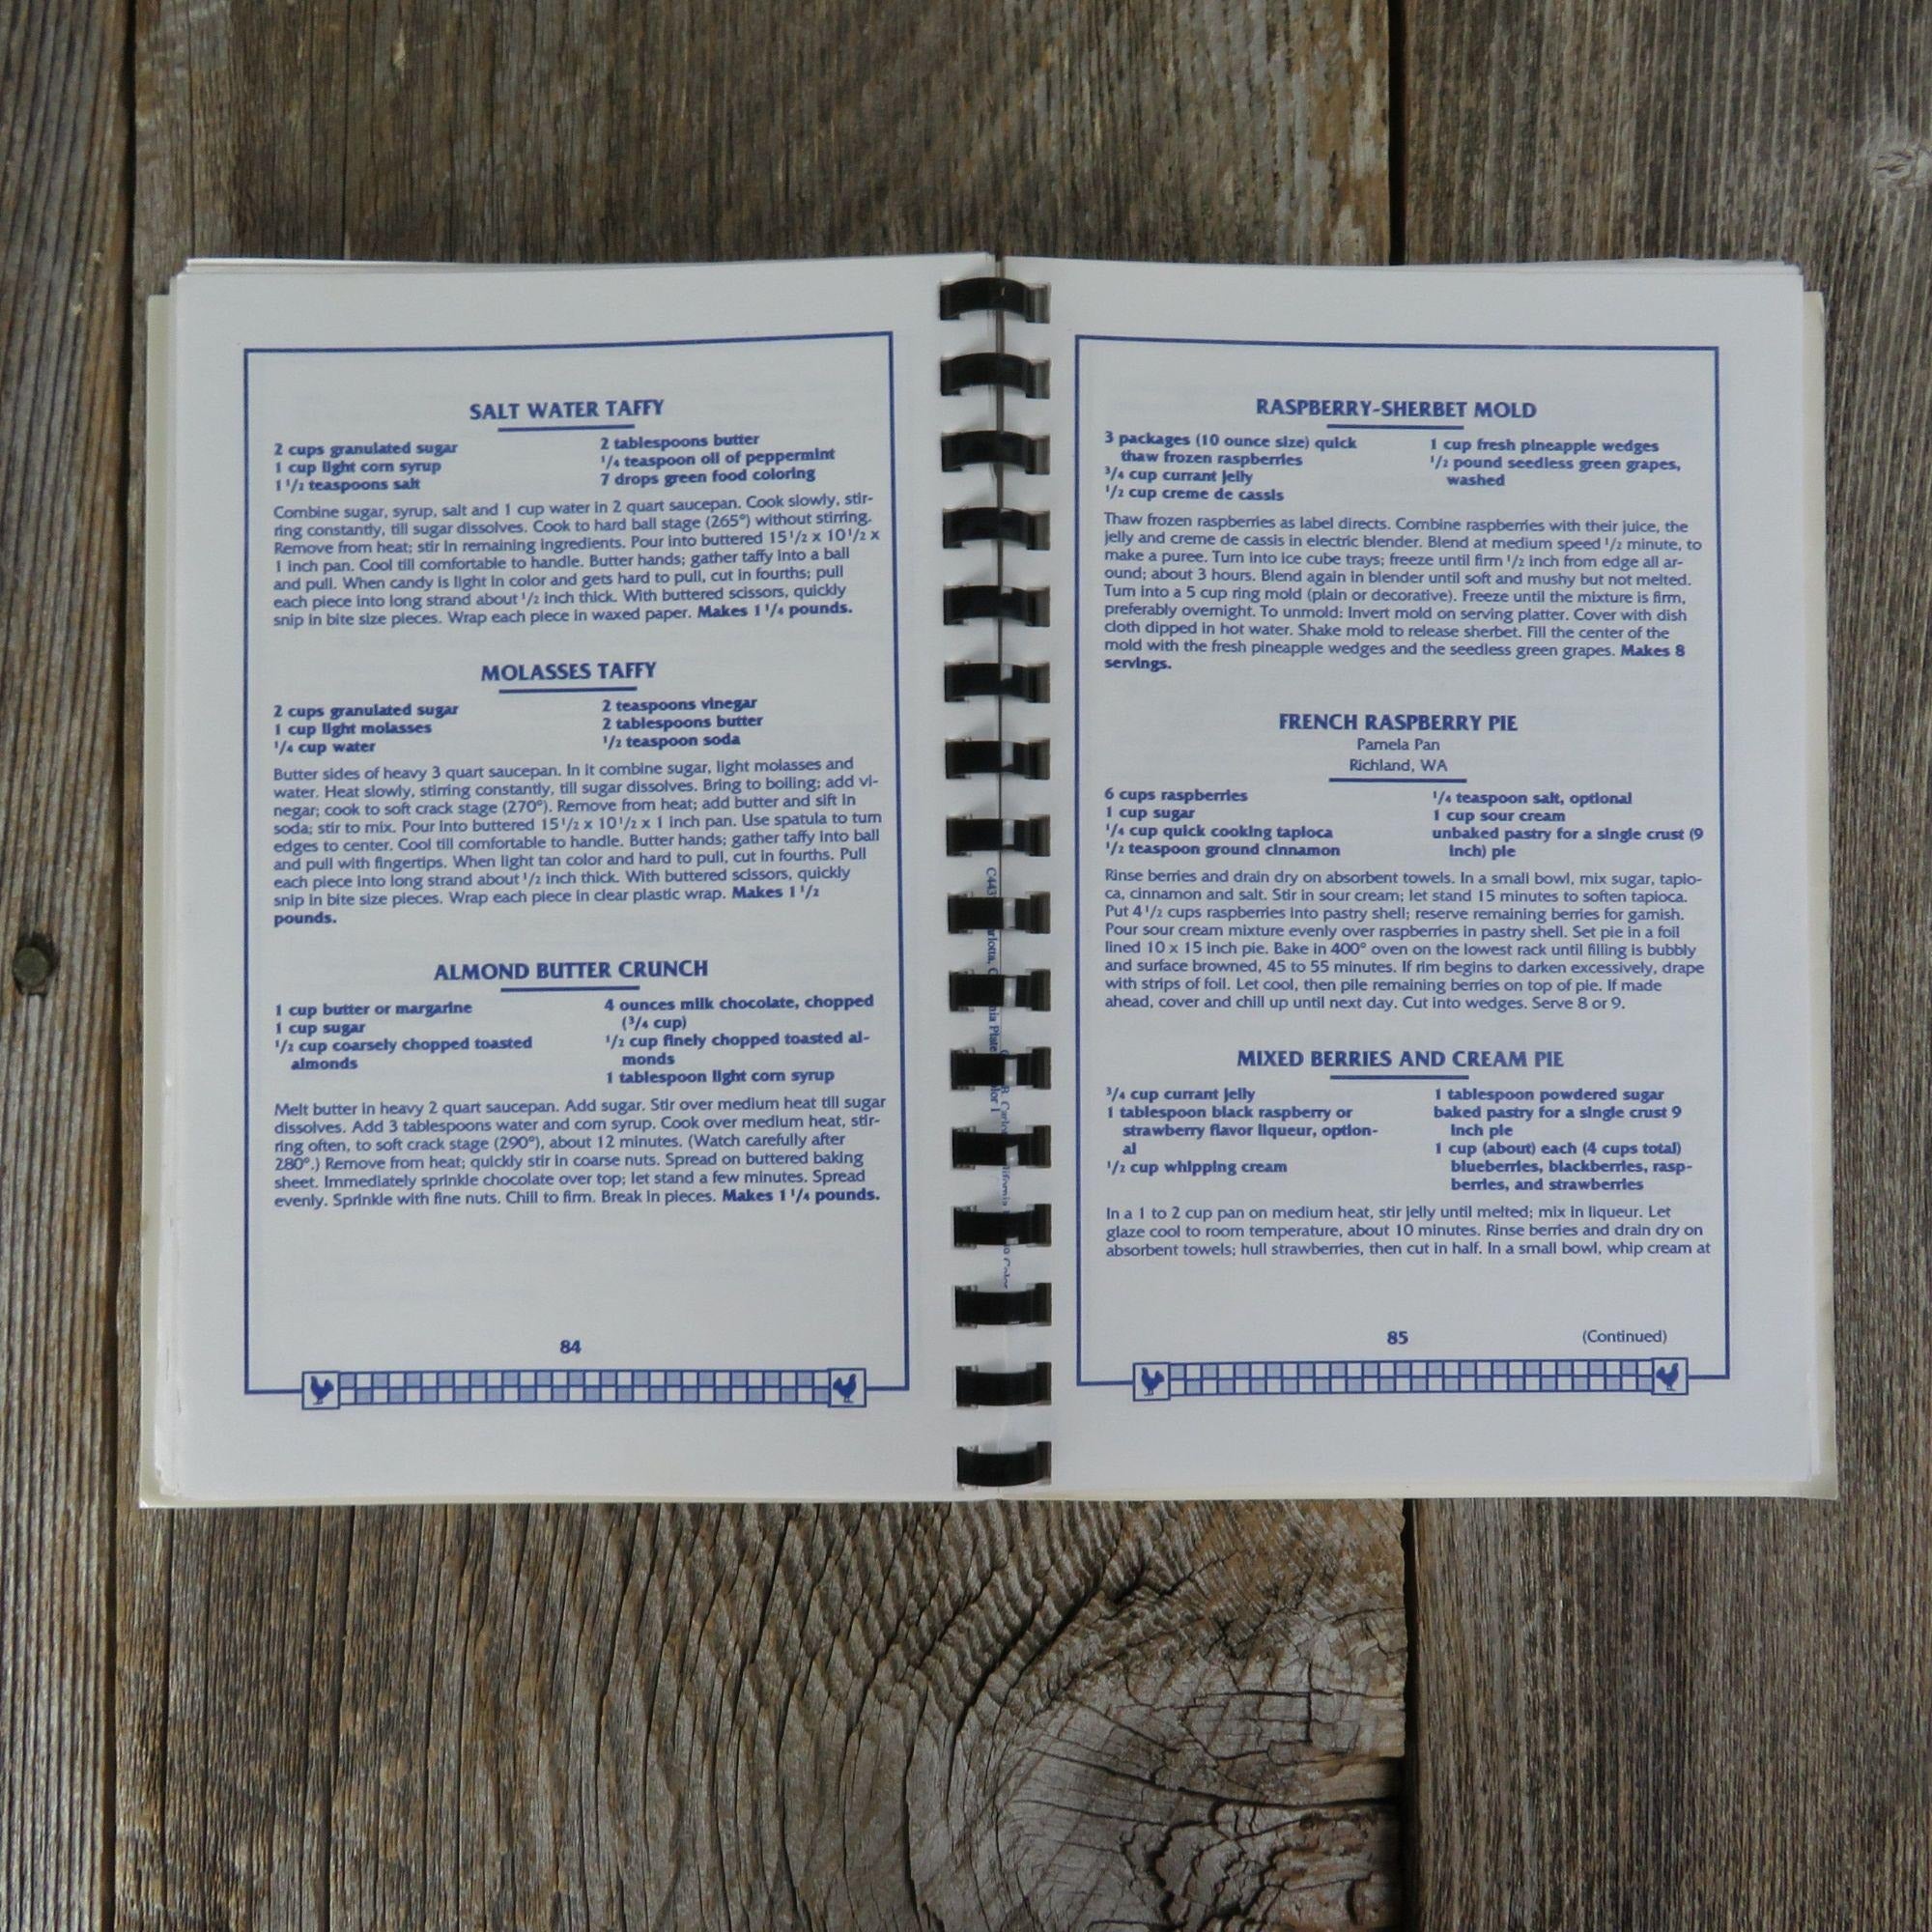 SALT WATER TAFFY
2 cups granulated sugar
1 cup light corn syrup
1 1/2 teaspoons salt
2 tablespoons butter
1/4 teaspoon oil of peppermint
7 drops green food coloring
Combine sugar, syrup, salt and 1 cup water in 2 quart saucepan. Cook slowly, stir-
ring constantly, till sugar dissolves. Cook to hard ball stage (265°) without stirring.
Remove from heat; stir in remaining ingredients. Pour into buttered 15 1/2 x 10 1/2 x
1 inch pan. Cool till comfortable to handle. Butter hands; gather taffy into a ball
and pull. When candy is light in color and gets hard to pull, cut in fourths; pull
each piece into long strand about 1/2 inch thick. With buttered scissors, quickly
snip in bite size pieces. Wrap each piece in waxed paper. Makes 1 1/4 pounds.
MOLASSES TAFFY
2 cups granulated sugar
1 cup light molasses
1/4 cup water
2 teaspoons vinegar
2 tablespoons butter
1/2 teaspoon soda
Butter sides of heavy 3 quart saucepan. In it combine sugar, light molasses and
water. Heat slowly, stirring constantly, till sugar dissolves. Bring to boiling; add vi-
negar; cook to soft crack stage (270°). Remove from heat; add butter and sift in
soda; stir to mix. Pour into buttered 15 1/2 x 10 1/2 x 1 inch pan. Use spatula to turn
edges to center. Cool till comfortable to handle. Butter hands; gather taffy into ball
and pull with fingertips. When light tan color and hard to pull, cut in fourths. Pull
each piece into long strand about 1/2 inch thick. With buttered scissors, quickly
snip in bite size pieces. Wrap each piece in clear plastic wrap. Makes 1 1/2
pounds.
ALMOND BUTTER CRUNCH
1 cup butter or margarine
1 cup sugar
1/2 cup coarsely chopped toasted
almonds
4 ounces milk chocolate, chopped
(3/4 cup)
1/2 cup finely chopped toasted al-
monds
1 tablespoon light corn syrup
Melt butter in heavy 2 quart saucepan. Add sugar. Stir over medium heat till sugar
dissolves. Add 3 tablespoons water and corn syrup. Cook over medium heat, stir-
ring often, to soft crack stage (290°), about 12 minutes. (Watch carefully after
280°.) Remove from heat; quickly stir in coarse nuts. Spread on buttered baking
sheet. Immediately sprinkle chocolate over top; let stand a few minutes. Spread
evenly. Sprinkle with fine nuts. Chill to firm. Break in pieces. Makes 1 1/4 pounds.
84
RASPBERRY-SHERBET MOLD
3 packages (10 ounce size) quick
thaw frozen raspberries
3/4 cup currant jelly
1/2 cup creme de cassis
1 cup fresh pineapple wedges
1/2 pound seedless green grapes,
washed
Thaw frozen raspberries as label directs. Combine raspberries with their juice, the
jelly and creme de cassis in electric blender. Blend at medium speed 1/2 minute, to
make a puree. Turn into ice cube trays; freeze until firm 1/2 inch from edge all ar-
ound; about 3 hours. Blend again in blender until soft and mushy but not melted.
Turn into a 5 cup ring mold (plain or decorative). Freeze until the mixture is firm,
preferably overnight. To unmold: Invert mold on serving platter. Cover with dish
cloth dipped in hot water. Shake mold to release sherbet. Fill the center of the
mold with the fresh pineapple wedges and the seedless green grapes. Makes 8
servings.
FRENCH RASPBERRY PIE
Pamela Pan
Richland, WA
6 cups raspberries
1 cup sugar
1/4 cup quick cooking tapioca
1/2 teaspoon ground cinnamon
1/4 teaspoon salt, optional
1 cup sour cream
unbaked pastry for a single crust (9
inch) pie
Rinse berries and drain dry on absorbent towels. In a small bowl, mix sugar, tapio-
ca, cinnamon and salt. Stir in sour cream; let stand 15 minutes to soften tapioca.
Put 4 1/2 cups raspberries into pastry shell; reserve remaining berries for garnish.
Pour sour cream mixture evenly over raspberries in pastry shell. Set pie in a foil
lined 10 x 15 inch pie. Bake in 400° oven on the lowest rack until filling is bubbly
and surface browned, 45 to 55 minutes. If rim begins to darken excessively, drape
with strips of foil. Let cool, then pile remaining berries on top of pie. If made
ahead, cover and chill up until next day. Cut into wedges. Serve 8 or 9.
MIXED BERRIES AND CREAM PIE
3/4 cup currant jelly
1 tablespoon black raspberry or
strawberry flavor liqueur, option-
al
1/2 cup whipping cream
1 tablespoon powdered sugar
baked pastry for a single crust 9
inch pie
1 cup (about) each (4 cups total)
blueberries, blackberries, rasp-
berries, and strawberries
In a 1 to 2 cup pan on medium heat, stir jelly until melted; mix in liqueur. Let
glaze cool to room temperature, about 10 minutes. Rinse berries and drain dry on
absorbent towels; hull strawberries, then cut in half. In a small bowl, whip cream at
85
(Continued)